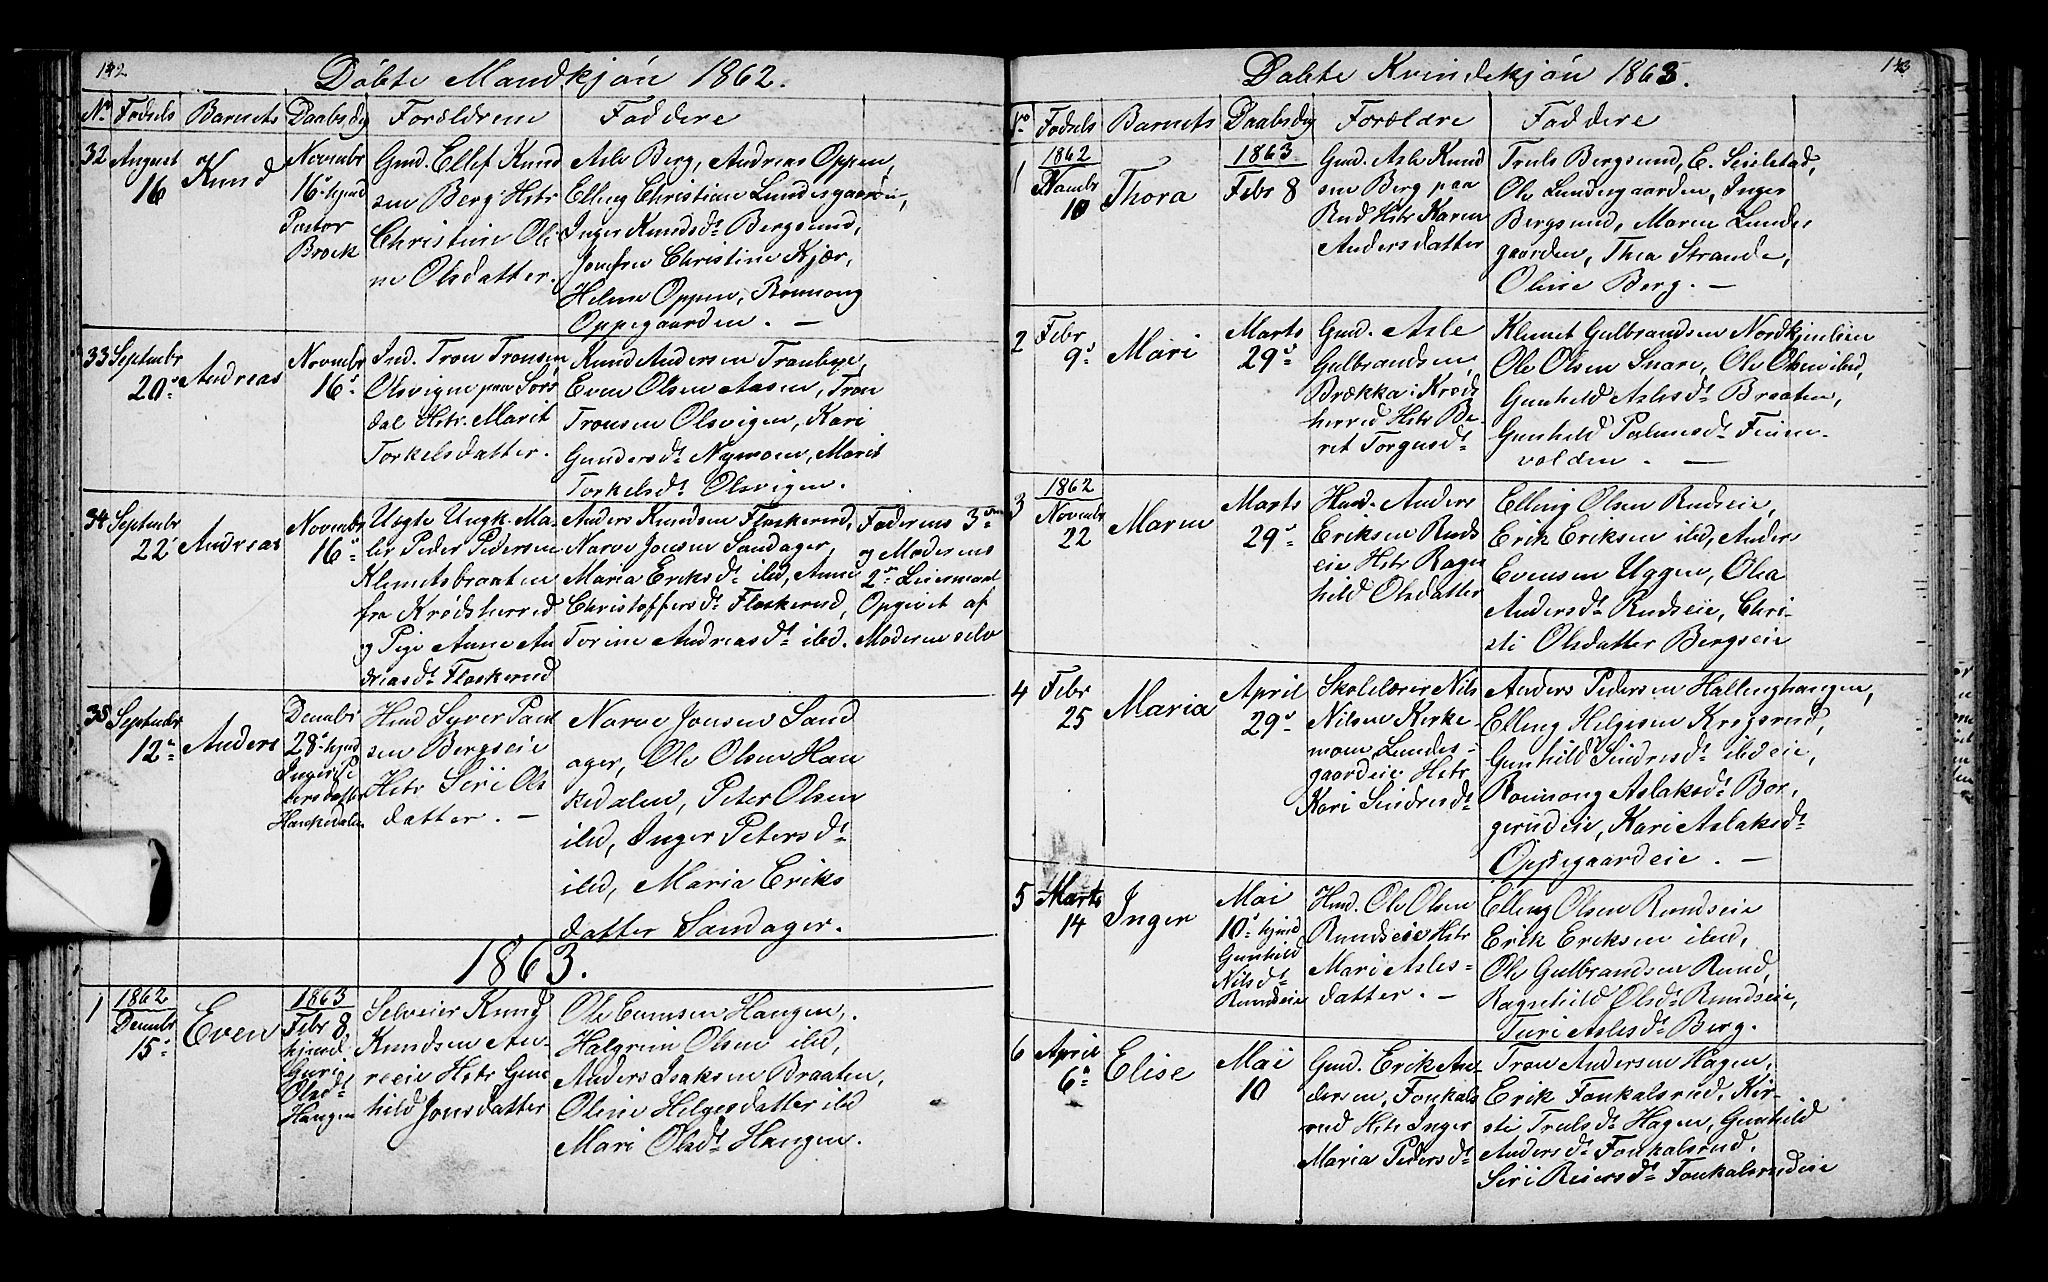 142
Döbte Mandkjön 1862.
No Födsels Barnets Daabsdag Forældrene Faddere
32 August 16 Knud Novembr 16de hjmd Pastor Brock
Gmd. Ellef Knud
sen Berg Hstr
Christine Oli
ne Olsdatter.
Asle Berg, Andreas Oppen,
Elling Christian Lundesgaarden,
Inger Knudsdt Bergsund,
Jomfru Christine Kjær,
Helene Oppen, Rönnoug
Oppegaarden. —
33 Septembr 20de Andreas Novembr 16de
Ind. Tron Tronsen
Olsvigen paa Sörs
dal Hstr. Marit
Torkelsdatter.
Knud Andersen Tranbye,
Even Olsen Aasen, Tron
Tronsen Olsvigen, Kari
Gundersdt Nymoen, Marit
Torkelsdt Olsvigen.
34 Septembr 22 Andreas Novembr 16de
Uægte Ungk. Ma-
ler Peder Pedersen
Klemetsbraaten
fra Krödsherred
og Pige Anne An
dreasdt Flaskerud
Anders Knudsen Flaskerud,
Narve Jonsen Sandager,
Maria Eriksdt ibd, Anne
Christoffersdt Flaskerud,
Torine Andreasdt ibd.
Faderens 3die
og Moderens
2det Leiermaal
Opgivet af
Moderen selv
35 Septembr 12te Anders Decmbr 28de hjmd Inger Pe
dersdatter
Haskedalen
Hmd Syver Paul
sen Bergseie
Hstr Siri Ols
datter. —
Narve Jonsen Sand
ager, Ole Olsen Has
kedalen, Peter Olsen
ibd, Inger Petersdt
ibd, Maria Eriks
datter Sandager.
1863.
1 1862 Decmbr 15de Even 1863 Febr 8. hjemd. Guri Olsdt Haugen
Selveier Knud
Knudsen An-
reeie Hstr Gun
hild Jonsdatter
Ole Evensen Haugen,
Halgrim Olsen ibd,
Anders Isaksen Braaten,
Oline Helgesdatter ibd
Mari Olsdt Haugen.
143
Dabte Kvindekjön 1863.
No Födsels Barnets Daabsdag Forældre Faddere
1 1862 Novmbr 10 Thora 1863 Febr 8
Gmd. Asle Knud
sen Berg paa
Rud Hstr Karen
Andersdatter
Truls Bergsund, E. Seielstad,
Ole Lundesgaarden, Inger
Bergsund, Maren Lundes
gaarden, Thea Strande,
Oline Berg. —
2 Febr 9de Mari Marts 29de
Gmd. Asle
Gulbrandsen,
Brækka i Kröds
herred Hstr Be-
ret Torgusdt
Klemet Gulbrandsen Nordkjenlien
Ole Olsen Snare, Ole Olsen ibd,
Gunhild Aslesdt Braaten,
Gunhild Palmesdt
volden. —
3 1862 Novembr 22 Maren Marts 29de
Husd. Anders
Eriksen Ruds
eie Hstr Ragn
hild Olsdatter
Elling Olsen Rudseie,
Erik Eriksen ibd, Anders
Evensen Uggen, Olea
Andersdt Rudseie, Chri-
sti Olsdatter Bergseie
4 Febr 25 Maria April 29de
Skolelærer Nils
Nilsen Kirke
moen Lundes-
gaardeie Hstr
Kari Sindresdt
Anders Pedersen Hallinghaugen,
Elling Helgesen Krogsrud,
Gunhild Sindresdt ibdeie,
Rönnoug Aslaksdt Bor,
gerudeie, Kari Aslaksdt
Oppegaardeie. —
5 Marts 14 Inger Mai 10de hjmd Gunhild Nilsdt Rundseie
Hmd. Ole Olsen
Rundseie Hstr
Mari Asles-
datter. —
Elling Olsen Rundseie
Erik Eriksen ibd,
Ole Gulbrandsen Rund,
Ragnhild Olsdt Rundseie,
Turi Aslesdt Berg.
6 April 6te Elise Mai 10
Gmd. Erik An-
dersen, Fonkals
rud Hstr Inger
Maria Pedersdt
Tron Andersen Hagen,
Erik Fonkalsrud, Kir-
sti Trulsdt Hagen, Gunhild
Andersdt Fonkalsrud,
Siri Reiersdt Fonkalsrudeie